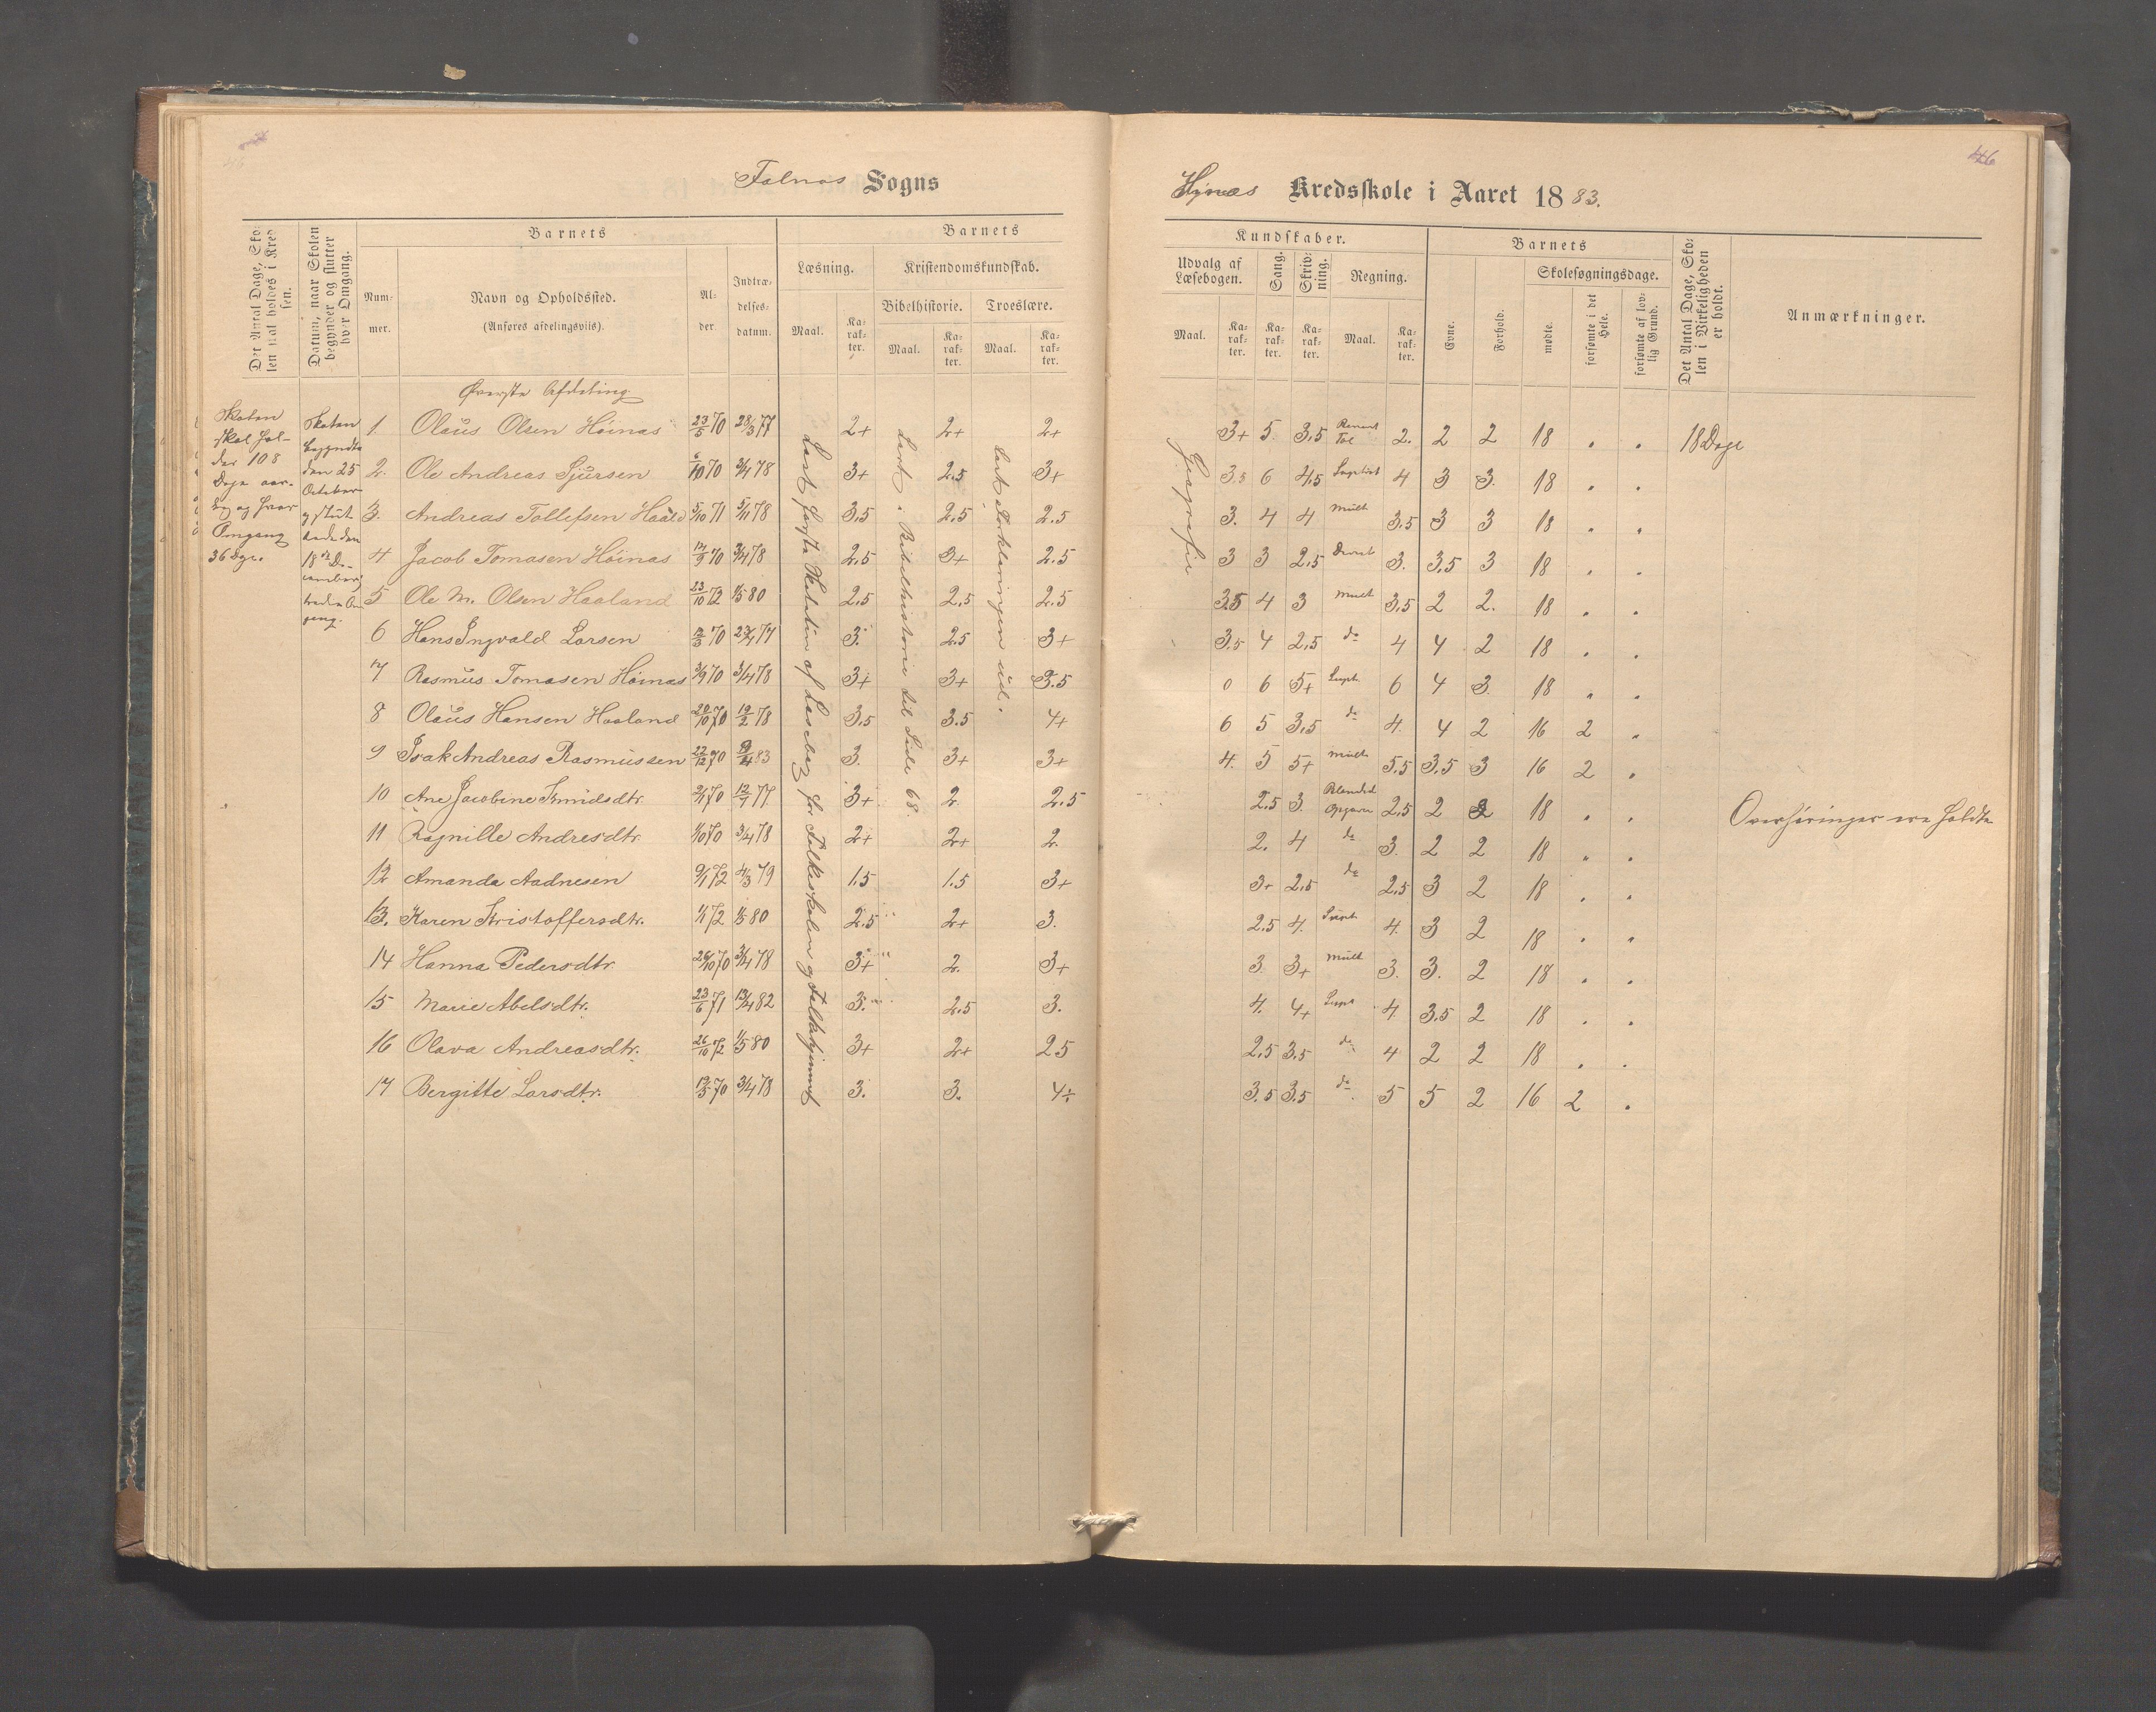 Falnæs Sogns
Høinæs Kredsskole i Aaret 1883.
46
Det Antal Dage, Skolen skal holdes i Kredsen.
Datum, naar Skolen begynder og slutter hver Omgang.
Barnets
Nummer.
Navn og Opholdssted.
(Anføres afdelingsviis).
Alder.
Indtrædelsesdatum.
Barnets
Læsning.
Maal.
Karakter.
Kristendomskundskab.
Bibelhistorie.
Maal.
Karakter.
Troeslære.
Maal.
Karakter.
Kundskaber.
Udvalg af Læsebogen.
Maal.
Karakter.
Sang.
Karakter.
Skrivning.
Karakter.
Regning.
Maal.
Karakter.
Barnets
Evne.
Forhold.
Skolesøgningsdage.
mødte.
forsømte i det Hele.
forsømte af lovlig Grund.
Det Antal Dage, Skolen i Virkeligheden er holdt.
Anmærkninger.
Skolen
skal hol-
des 108
Dage aar-
lig og hver
Omgang
36 Dge.
Skolen
begyndte
den 25
October
og slut-
tede den
18de De-
cember
tredie Om-
gang.
Øverste Afdeling
Læst første Skoletrin af Læsebog for Folkeskolen og Folkehjemmet
Læst i Bibelhistorie til Side 68.
Læst Forklaringen ud.
Geografie
1. Olaus Olsen Höinæs 23/5 70 28/3 77 2+ 2+ 2+ 3+ 5. 3,5 2. 2 2 18 . . 18 Dage
2. Ole Andreas Sjursen 6/10 70 3/4 78 3+ 2,5 3+ 3,5 6 4,5 4 3 3. 18 . .
3. Andreas Tollefsen Haald 5/10 71 5/11 78 3,5 2,5 2.5 3. 4 4 Mult 3,5 3 3 18 . .
4 Jacob Tomasen Höinas 12/9 70 3/4 78 2,5 3+ 2.5 3 3 2,5 3. 3,5 3 18 . .
5 Ole M. Olsen Haaland 23/10 72 1/5 80 2,5 2,5 2.5 3.5 4 3 Mult 3,5 2 2. 18 . .
6 Hans Ingvald Larsen 70 3. 2.5 3+ 3,5 4 2,5 do 4 4 2 18 . .
7 Rasmus Tomasen Höinas 3/9 70 3/4 78 3+ 3+ 3.5 0 6 5+ Supt. 6 4 3. 18 . .
8 Olaus Hansen Haaland 28/10 70 19/2 78 3,5 3.5 4+ 6 5 3,5 do 4. 4 2 16 2 .
9 Isak Andreas Rasmussen 22/12 70 9/4 83 3. 3+ 3+ 4. 5 5+ Mult 5,5 3,5 3 16 2 .
10 Ane Jacobine Knudsdtr. 70 12/7 77. 3+ 2. 2.5 2,5 3. Blandede Opgaver 2,5 2 2 18 . . Overhøringer ere holdte
11 Ragnille Andresdtr. 70 3/4 78 2+ 2+ 2. 2. 4 do 3. 2 2 18 . .
12 Amanda Aadnesen 9/1 72 4/3 79 1.5 1.5 3+ 3+ 2,5 do 2,5 3 2 18 . .
13. Karen Kristoffersdtr. 1/1 72 1/5 80 2.5 2+ 3. 2.5 4. Supt. 4. 3 2 18 . .
14 Hanna Pedersdtr 26/10 70 3/4 78 3+ 2. 3+ 3. 3+ Mult 3. 3. 2 18 . .
15 Marie Abelsdtr. 23/6 71 13/4 82 3. 2.5 3. 4. 4+ Supt 4. 3,5 2 18 . .
16 Olava Andreasdtr. 26/10 72 1/5 80 3+ 2+ 2 5 2,5 3.5 do 4 2 2 18 . .
17 Bergitte Larsdtr. 19/5 70 3/4 78 3. 3. 4+ 3.5 3.5 do 5 5 2 16 2 .